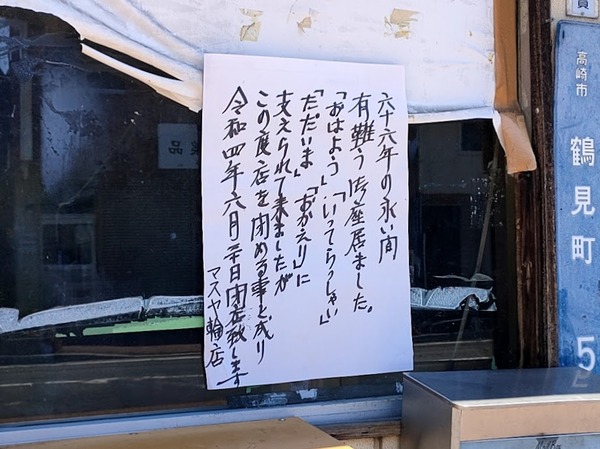 六十六年の永い間
有難う御座居ました。
「おはよう」「いってらっしゃい」
「ただいま」「おかえり」に
支えられて来ましたが
この度店を閉める事と成り
令和四年六月三十日閉店致します
マスヤ輪店
高崎市
鶴見町
5